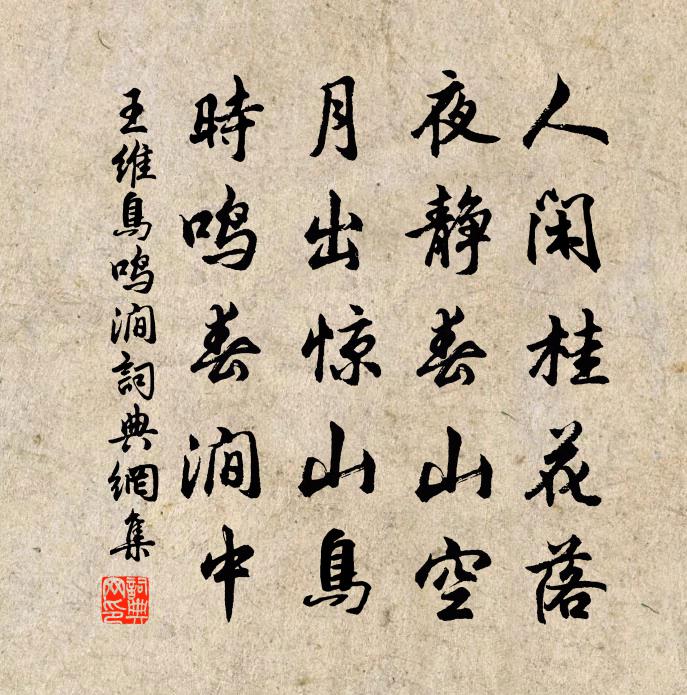 人闲桂花落
夜静春山空
月出惊山鳥
時鸣春澗中
王維鳥鸣澗詞典網集
詞典
网印